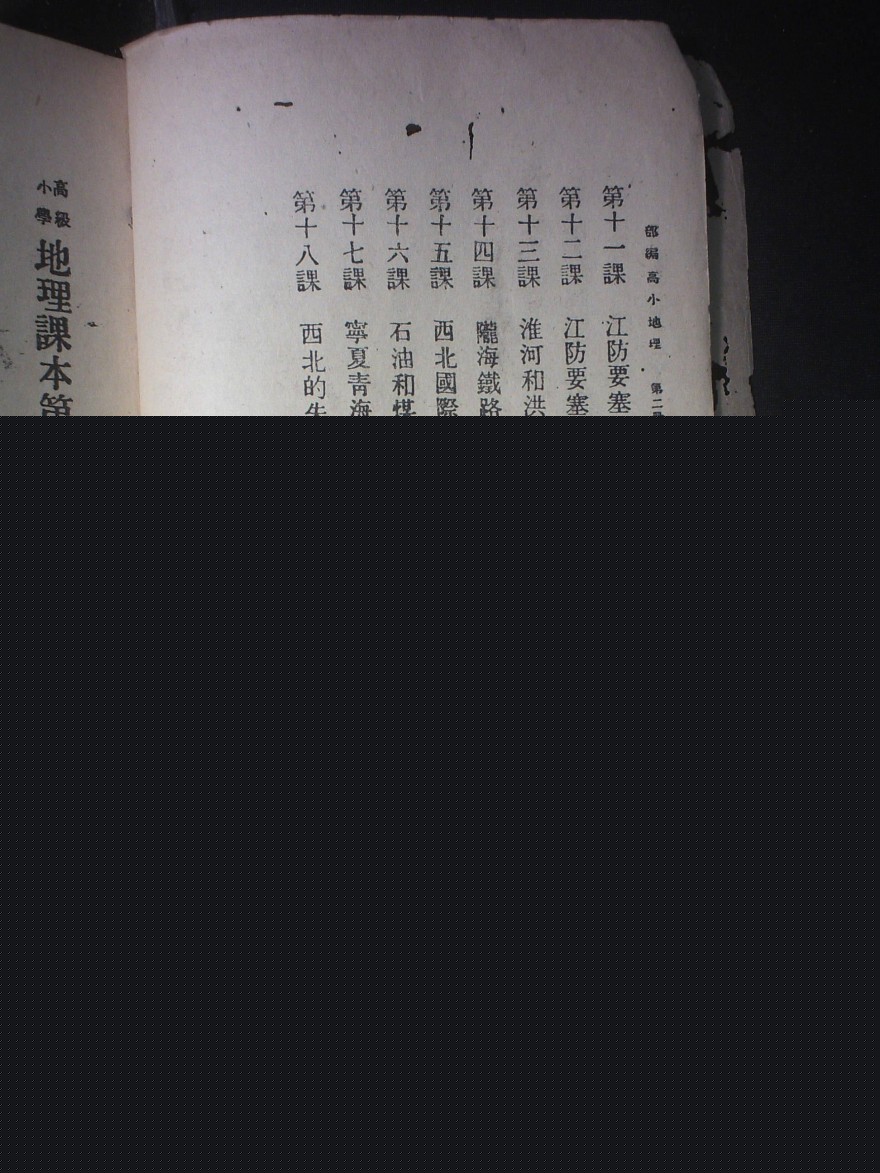 部編高小地理 第二
第十一課 江防要塞
第十二課 江防要塞
第十三課 淮河和洪
第十四課 隴海鐵路
第十五課 西北國際
第十六課 石油和煤
第十七課 寧夏青海
第十八課 西北的
高級小學地理課本第